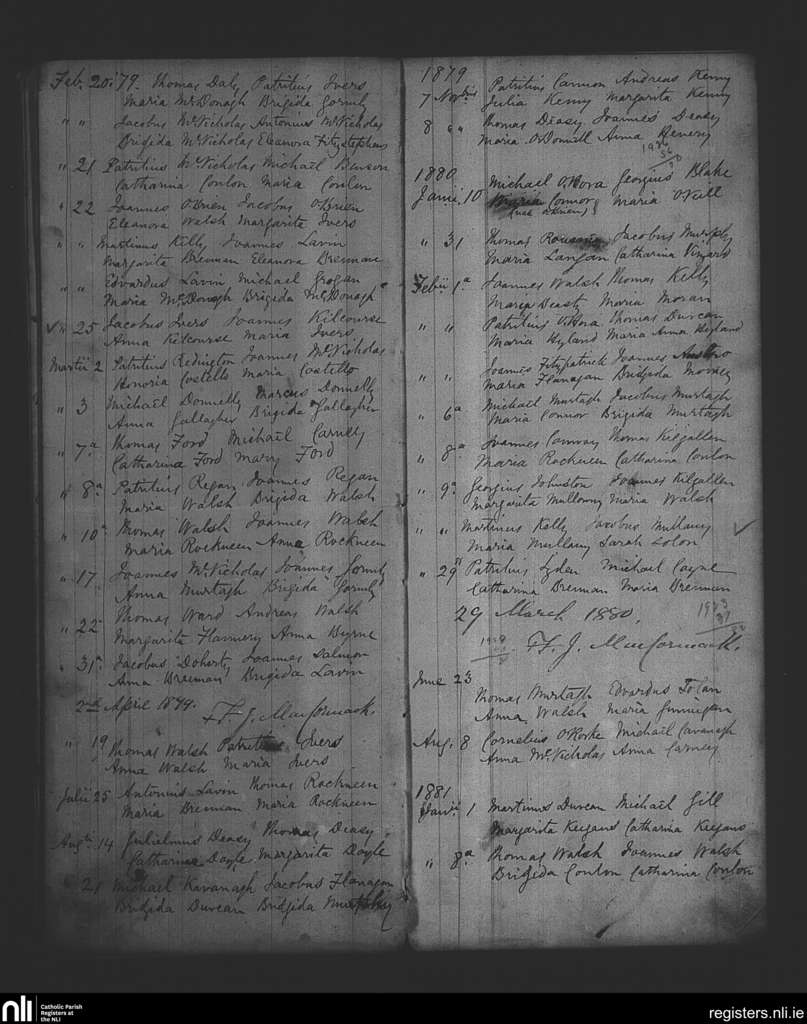 Feb. 20. '79. Thomas Daly Patritius Ivers
Maria McDonagh Brigida Gormly
" " Jacobus McNicholas Antonius McNicholas
Brigida McNicholas Eleanora Fitzstephens
" 21 Patritius McNicholas Michael Benson
Catharina Conlon Maria Conlon
" 22 Joannes O'Brien Jacobus O'Brien
Eleanora Walsh Margarita Ivers
" " Martinus Kelly Joannes Lavin
Margarita Brennan Eleanora Brennan
" " Edvardus Lavin Michael Grogan
Maria McDonagh Brigida McDonagh
✓ " 25 Jacobus Ivers Joannes Kilcourse
Anna Kilcourse Maria Ivers
Martii 2 Patritius Redington Joannes McNicholas
Honoria Costello Maria Costello
" 3 Michael Donnelly Marcus Donnelly
Anna Gallagher Brigida Gallagher
" 7.a Thomas Ford Michael Carney
Catharina Ford Mary Ford
" 8.a Patritius Regan Joannes Regan
Maria Walsh Brigida Walsh
" 10.a Thomas Walsh Joannes Walsh
Maria Rockneen Anna Rockneen
" 17 Joannes McNicholas Joannes Gormly
Anna Murtagh Brigida Gormly
" 22 Thomas Ward Andreas Walsh
Margarita Flannery Anna Byrne
" 31a Jacobus Doherty Joannes Salmon
Anna Brennan Brigida Lavin
2nd April 1879. Ff. J. MacCormack
" 19 Thomas Walsh Patritius Ivers
Anna Walsh Maria Ivers
Julii 25 Antonius Lavin Thomas Rockneen
Maria Brennan Maria Rockneen
Augti 14 Gulielmus Deasy Thomas Deasy
Catharina Doyle Margarita Doyle
21 Michael Kavanagh Jacobus Flanagan
Bridgida Duncan Bridgida Murphy
1879
Patritius Cannon Andreas Kenny
7 Novbris Julia Kenny Margarita Kenny
8 " a Thomas Deasy Joannes Deasy
Maria O'Donnell Anna
1880
Januii, 10 Michael O'Hora Georgius Blake
Maria Connor Maria O'Neill
" 31 Thomas Jacobus Murphy
Maria Langan Catharina
Febii 1a Joannes Walsh Thomas Kelly
Maria Deasy Maria Moran
" " Patritius O'Hora Thomas Duncan
Maria Hyland Maria Anna Hyland
" " Joannes Fitzpatrick Joannes
Maria Flanagan Bridgida
" 6a Michael Murtagh Jacobus Murtagh
Maria Connor Brigida Murtagh
" 8a Joannes Conway Thomas Kilgallen
Maria Rockneen Catharina Conlon
" 9a Georgius Johnston Joannes Kilgallen
Margarita Mullowny Maria Walsh
" " Martinus Kelly Jacobus Mullany ✓
Maria Mullany Sarah Solon
" 29 Patritius Lyden Michael Coyne
Catharina Brennan Maria Brennan
29 March 1880.
Ff. J. MacCormack.
June 23
Thomas Murtagh Edvardus Tolan
Anna Walsh Maria Finnigan
Aug. 8 Cornelius O'Rorke Michael Cavanagh
Anna McNicholas Anna Carney
1881
Januii 1 Martinus Duncan Michael Gill
Margarita Keegans Catharina Keegans
" 8.a Thomas Walsh Joannes Walsh
Bridgida Conlon Catharina Conlon
nli
Catholic Parish
Registers at
the NLI
registers.nli.ie